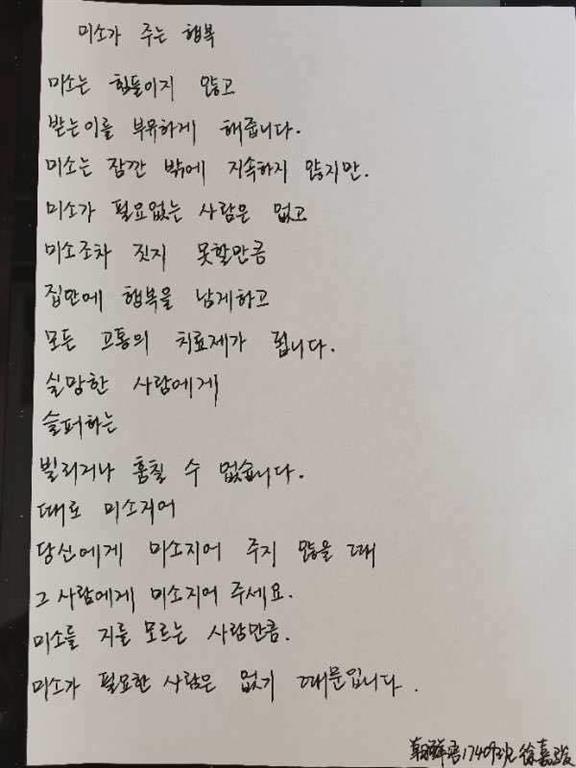 미소가 주는 행복
미소는 힘들이지 않고
받는이를 부유하게 해줍니다.
미소는 잠깐 밖에 지속하지 않지만.
미소가 필요없는 사람은 없고
미소조차 짓지 못할만큼
집안에 행복을 남게하고
모든 고통의 치료제가 됩니다.
실망한 사람에게
슬퍼하는
빌리거나 훔칠 수 없습니다.
때로 미소지어
당신에게 미소지어 주지 않을 때
그 사람에게 미소지어 주세요.
미소를 지를 모르는 사람만큼.
미소가 필요한 사람은 없기 때문입니다.
朝鲜语1740班 徐嘉骏